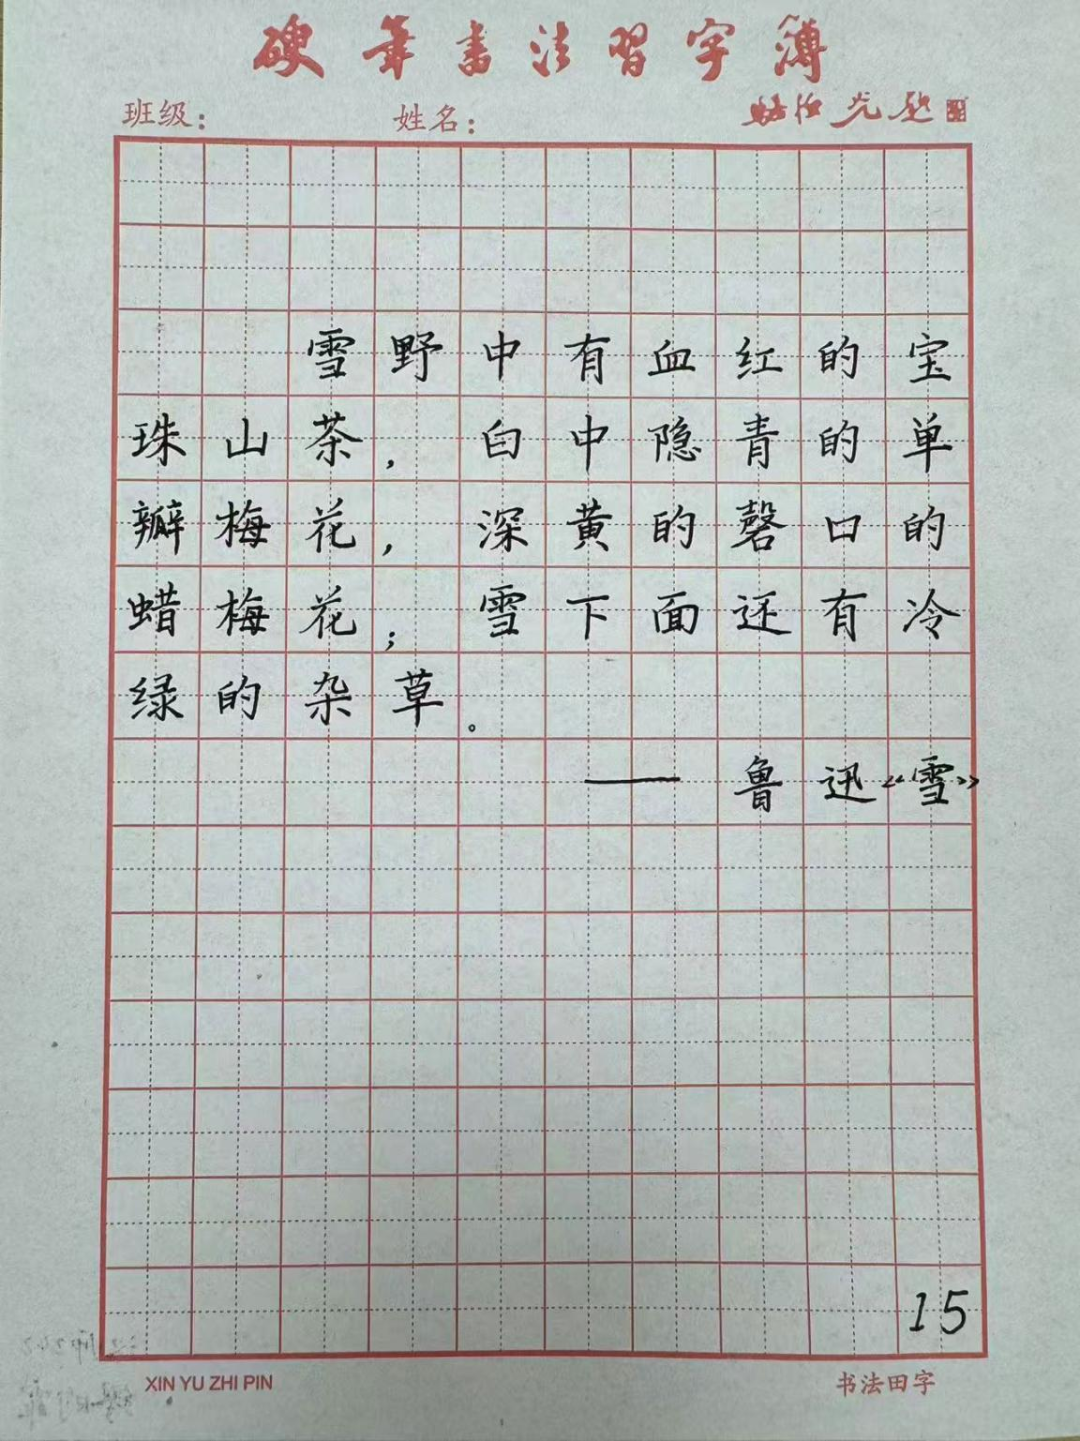 硬笔书法习字簿
班级：　姓名：
雪野中有血红的宝
珠山茶，白中隐青的单
瓣梅花，深黄的磬口的
蜡梅花；雪下面还有冷
绿的杂草。
——鲁迅《雪》
15
XIN YU ZHI PIN　书法田字